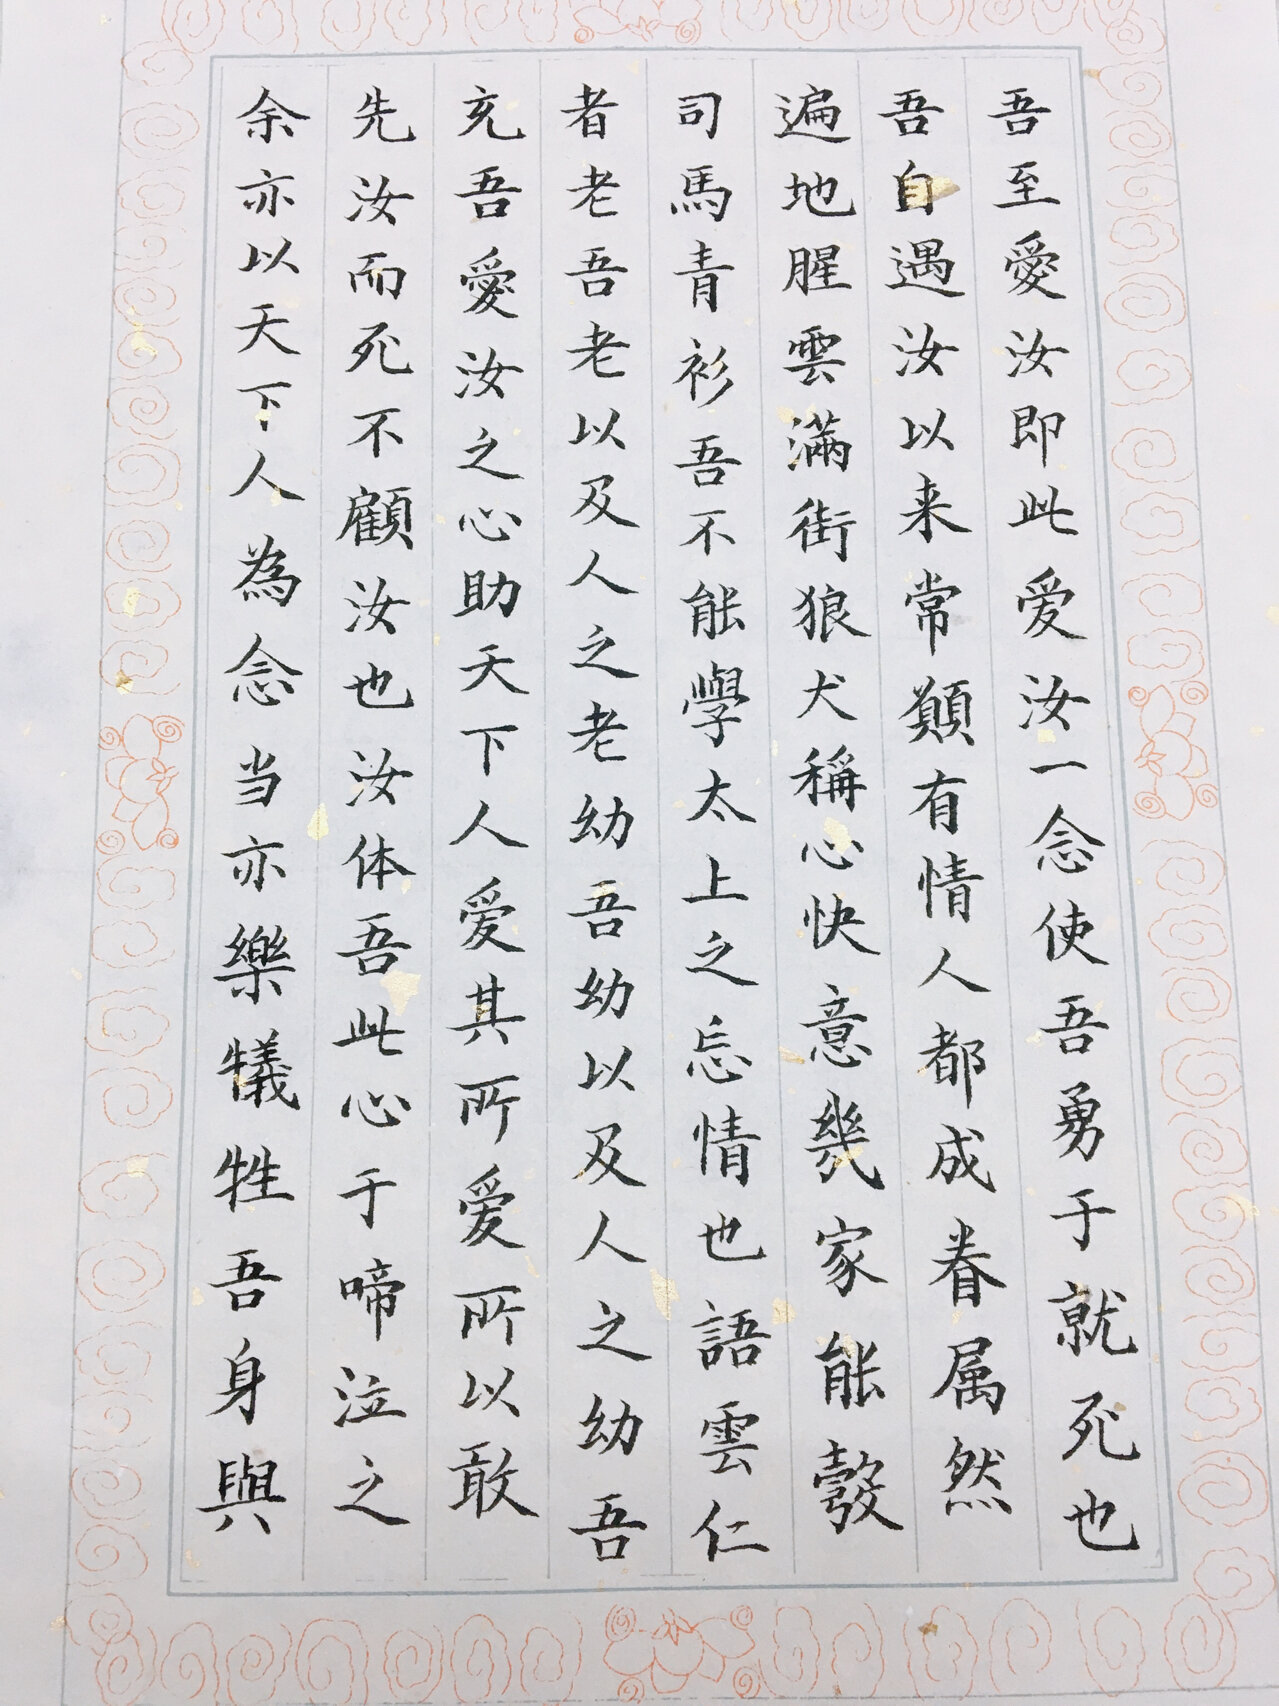 吾至愛汝即此爱汝一念使吾勇于就死也
吾自遇汝以来常願有情人都成眷属然
遍地腥雲滿街狼犬稱心快意幾家能彀
司馬青衫吾不能學太上之忘情也語雲仁
者老吾老以及人之老幼吾幼以及人之幼吾
充吾愛汝之心助天下人爱其所爱所以敢
先汝而死不顧汝也汝体吾此心于啼泣之
余亦以天下人為念当亦樂犧牲吾身與